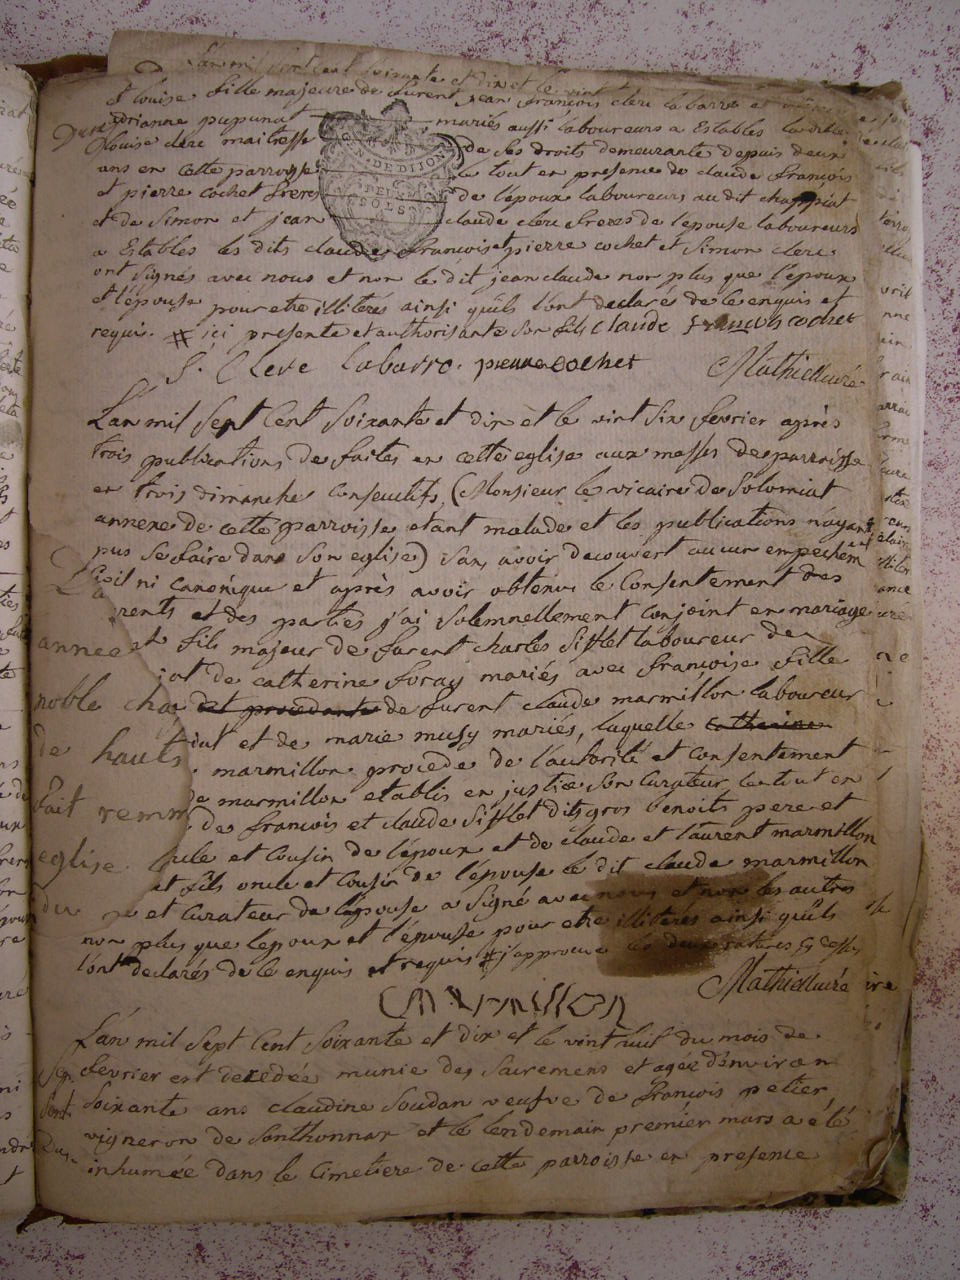 L'an mil sept cent soixante et dix et le vint
et louise fille majeure de furent jean françois clerc labarre et
adrianne pupunat mariés aussi laboureurs a Estables la dite
louise clerc maitresse de ses droits demeurante depuis deux
ans en cette parroisse le tout en presence de claude françois
et pierre cochet freres de l'époux laboureurs au dit
et de Simon et jean claude clerc freres de l'epouse laboureurs
a Estables les dits claude françois et pierre cochet et Simon clerc
ont signés avec nous et non le dit jean claude non plus que l'époux
et l'épouse pour etre illiterés ainsi qu'ils l'ont declarés de ce enquis et
requis. # ici presente et authorisante son fils claude françois cochet
S. Clere labarre. pierre cochet Mathieu curé
GEN. DE DIJON
SOLS
L'an mil sept cent soixante et dix et le vint six fevrier après
trois publications de faites en cette eglise aux messes de parroisse
en trois dimanche consecutifs, (Monsieur le vicaire de Solomiat
annexe de cette parroisse etant malade et les publications n'ayant
pus se faire dans son eglise) sans avoir decouvert aucun empechem
civil ni canonique et après avoir obtenu le consentement des
rents et des parties j'ai solemnellement conjoint en mariage
et fils majeur de furent charles Sifflet laboureur de
iat de catherine foray mariés avec françoise fille
et procedante de furent claude marmillon laboureur
iat et de marie musy mariés, laquelle catherine
marmillon procede de l'autorité et consentement
de marmillon etablis en justice son curateur le tout en
de françois et claude Sifflet dits gros benoits pere et
oncle et cousin de l'époux et de claude et laurent marmillon
et fils oncle et cousin de l'épouse le dit claude marmillon
et curateur de l'épouse a signé avec nous et non les autres
non plus que l'epoux et l'épouse pour etre illiterés ainsi qu'ils
l'ont declarés de ce enquis et requis # j'approuve les deux ratures cy dessus
Mathieu curé
CMarmillon
annee
noble cha
de hauts
fait remm
eglise
du
L'an mil sept cent soixante et dix et le vint huit du mois de
fevrier est decedée munie des sacremens et agée d'environ
soixante ans claudine soudan veufve de françois peltier
vigneron de Sonthonnax et le lendemain premier mars a été
inhumée dans le cimetiere de cette parroisse en presence